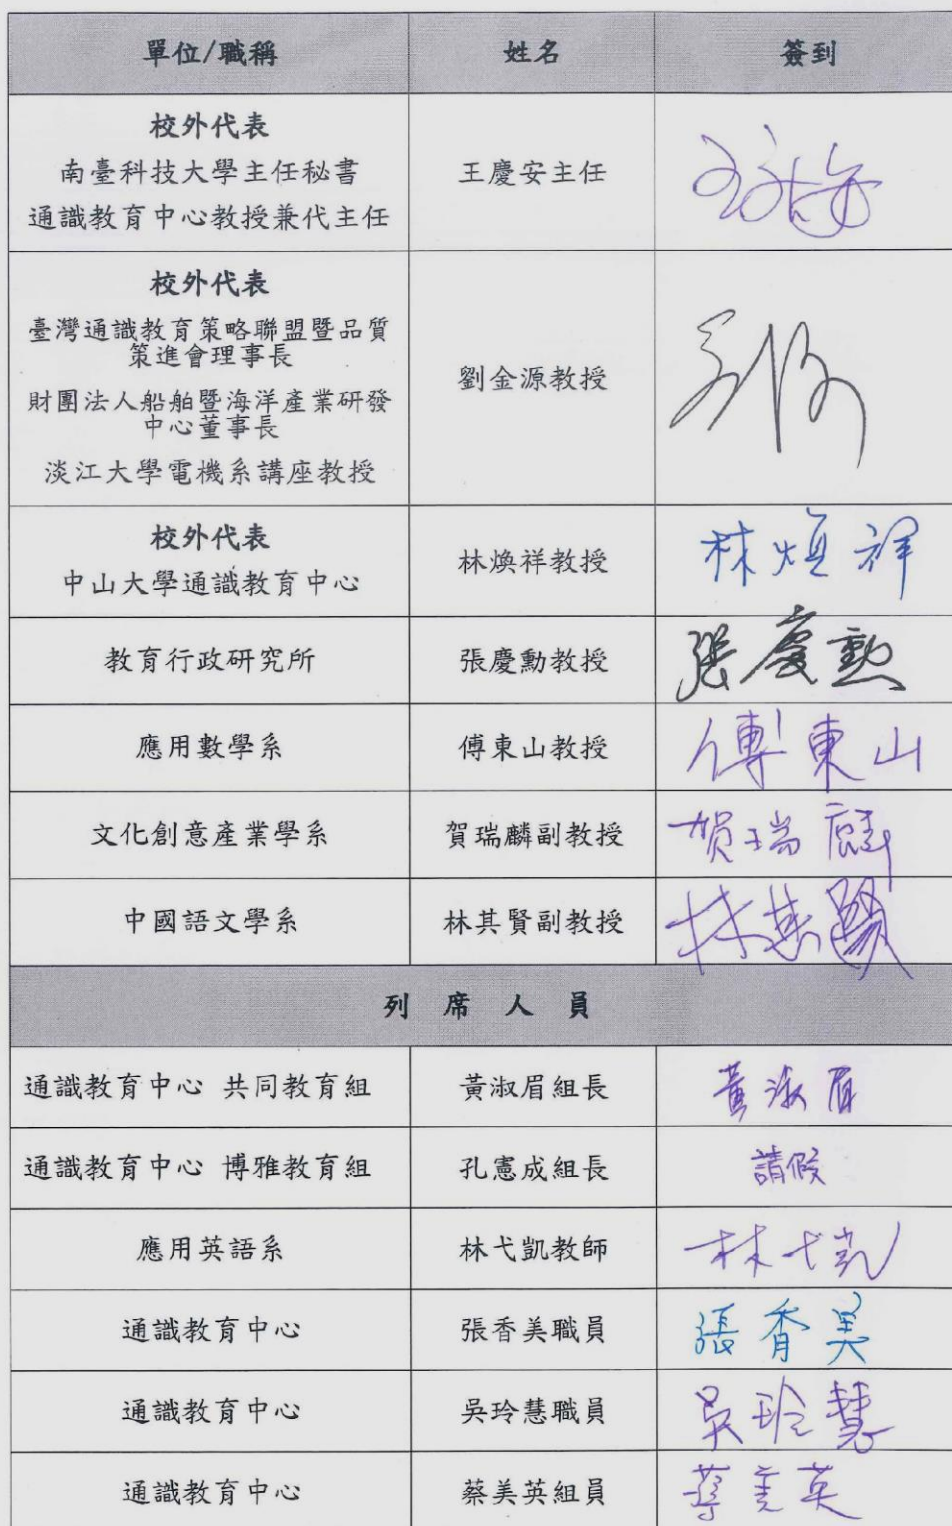 單位/職稱 姓名 簽到
校外代表
南臺科技大學主任秘書
通識教育中心教授兼代主任
王慶安主任
校外代表
臺灣通識教育策略聯盟暨品質
策進會理事長
財團法人船舶暨海洋產業研發
中心董事長
淡江大學電機系講座教授
劉金源教授
校外代表
中山大學通識教育中心
林煥祥教授 林煥祥
教育行政研究所 張慶勳教授 張慶勳
應用數學系 傅東山教授 傅東山
文化創意產業學系 賀瑞麟副教授 賀瑞麟
中國語文學系 林其賢副教授 林其賢
列席人員
通識教育中心 共同教育組 黃淑眉組長 黃淑眉
通識教育中心 博雅教育組 孔憲成組長 請假
應用英語系 林弋凱教師 林弋凱
通識教育中心 張香美職員 張香美
通識教育中心 吳玲慧職員 吳玲慧
通識教育中心 蔡美英組員 蔡美英